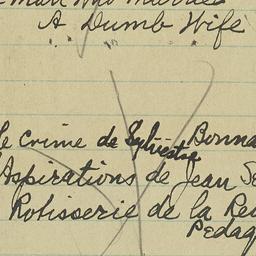 Man Who Married
A Dumb Wife
le crime de Sylvestre Bonna
Aspirations de Jean Se
Rotisserie de la Rei
Pedaq